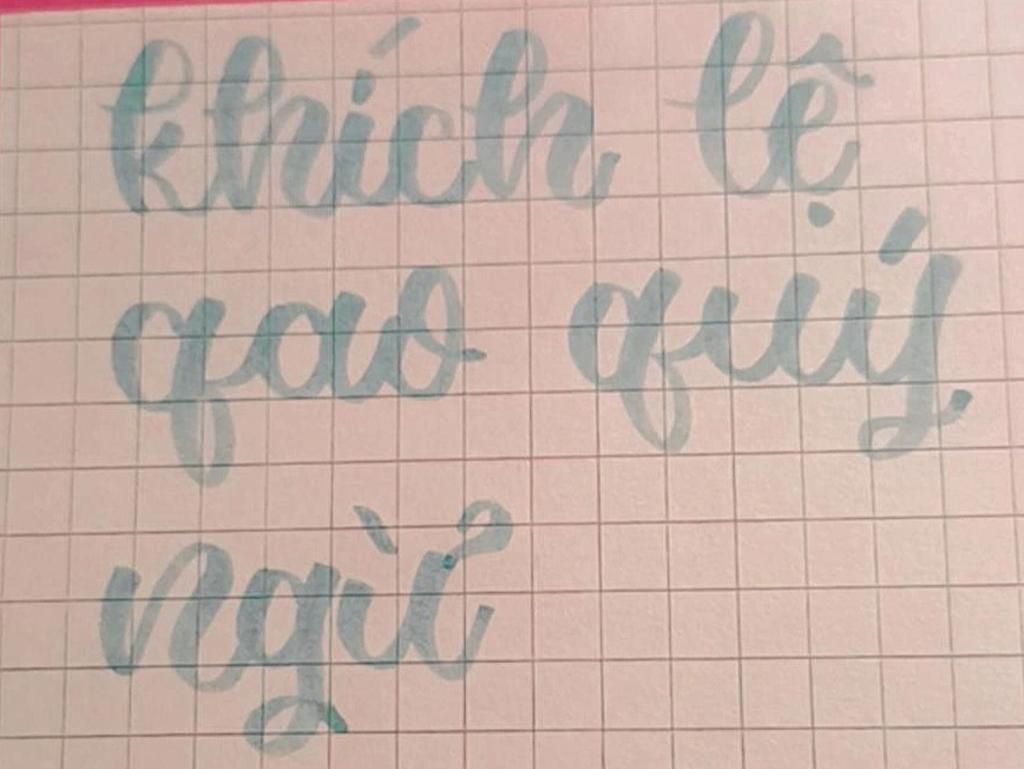 khích lệ
qao quý
ngừ